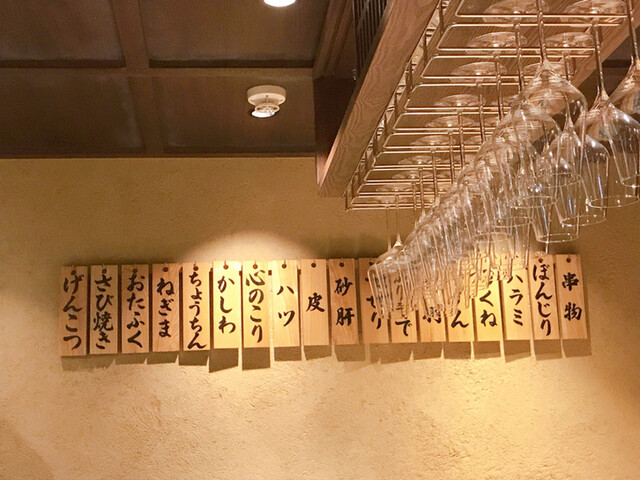 串物
ぼんじり
ハラミ
くね
ん
で
り
砂肝
皮
ハツ
心のこり
かしわ
ちょうちん
ねぎま
おたふく
さび焼き
げんこつ